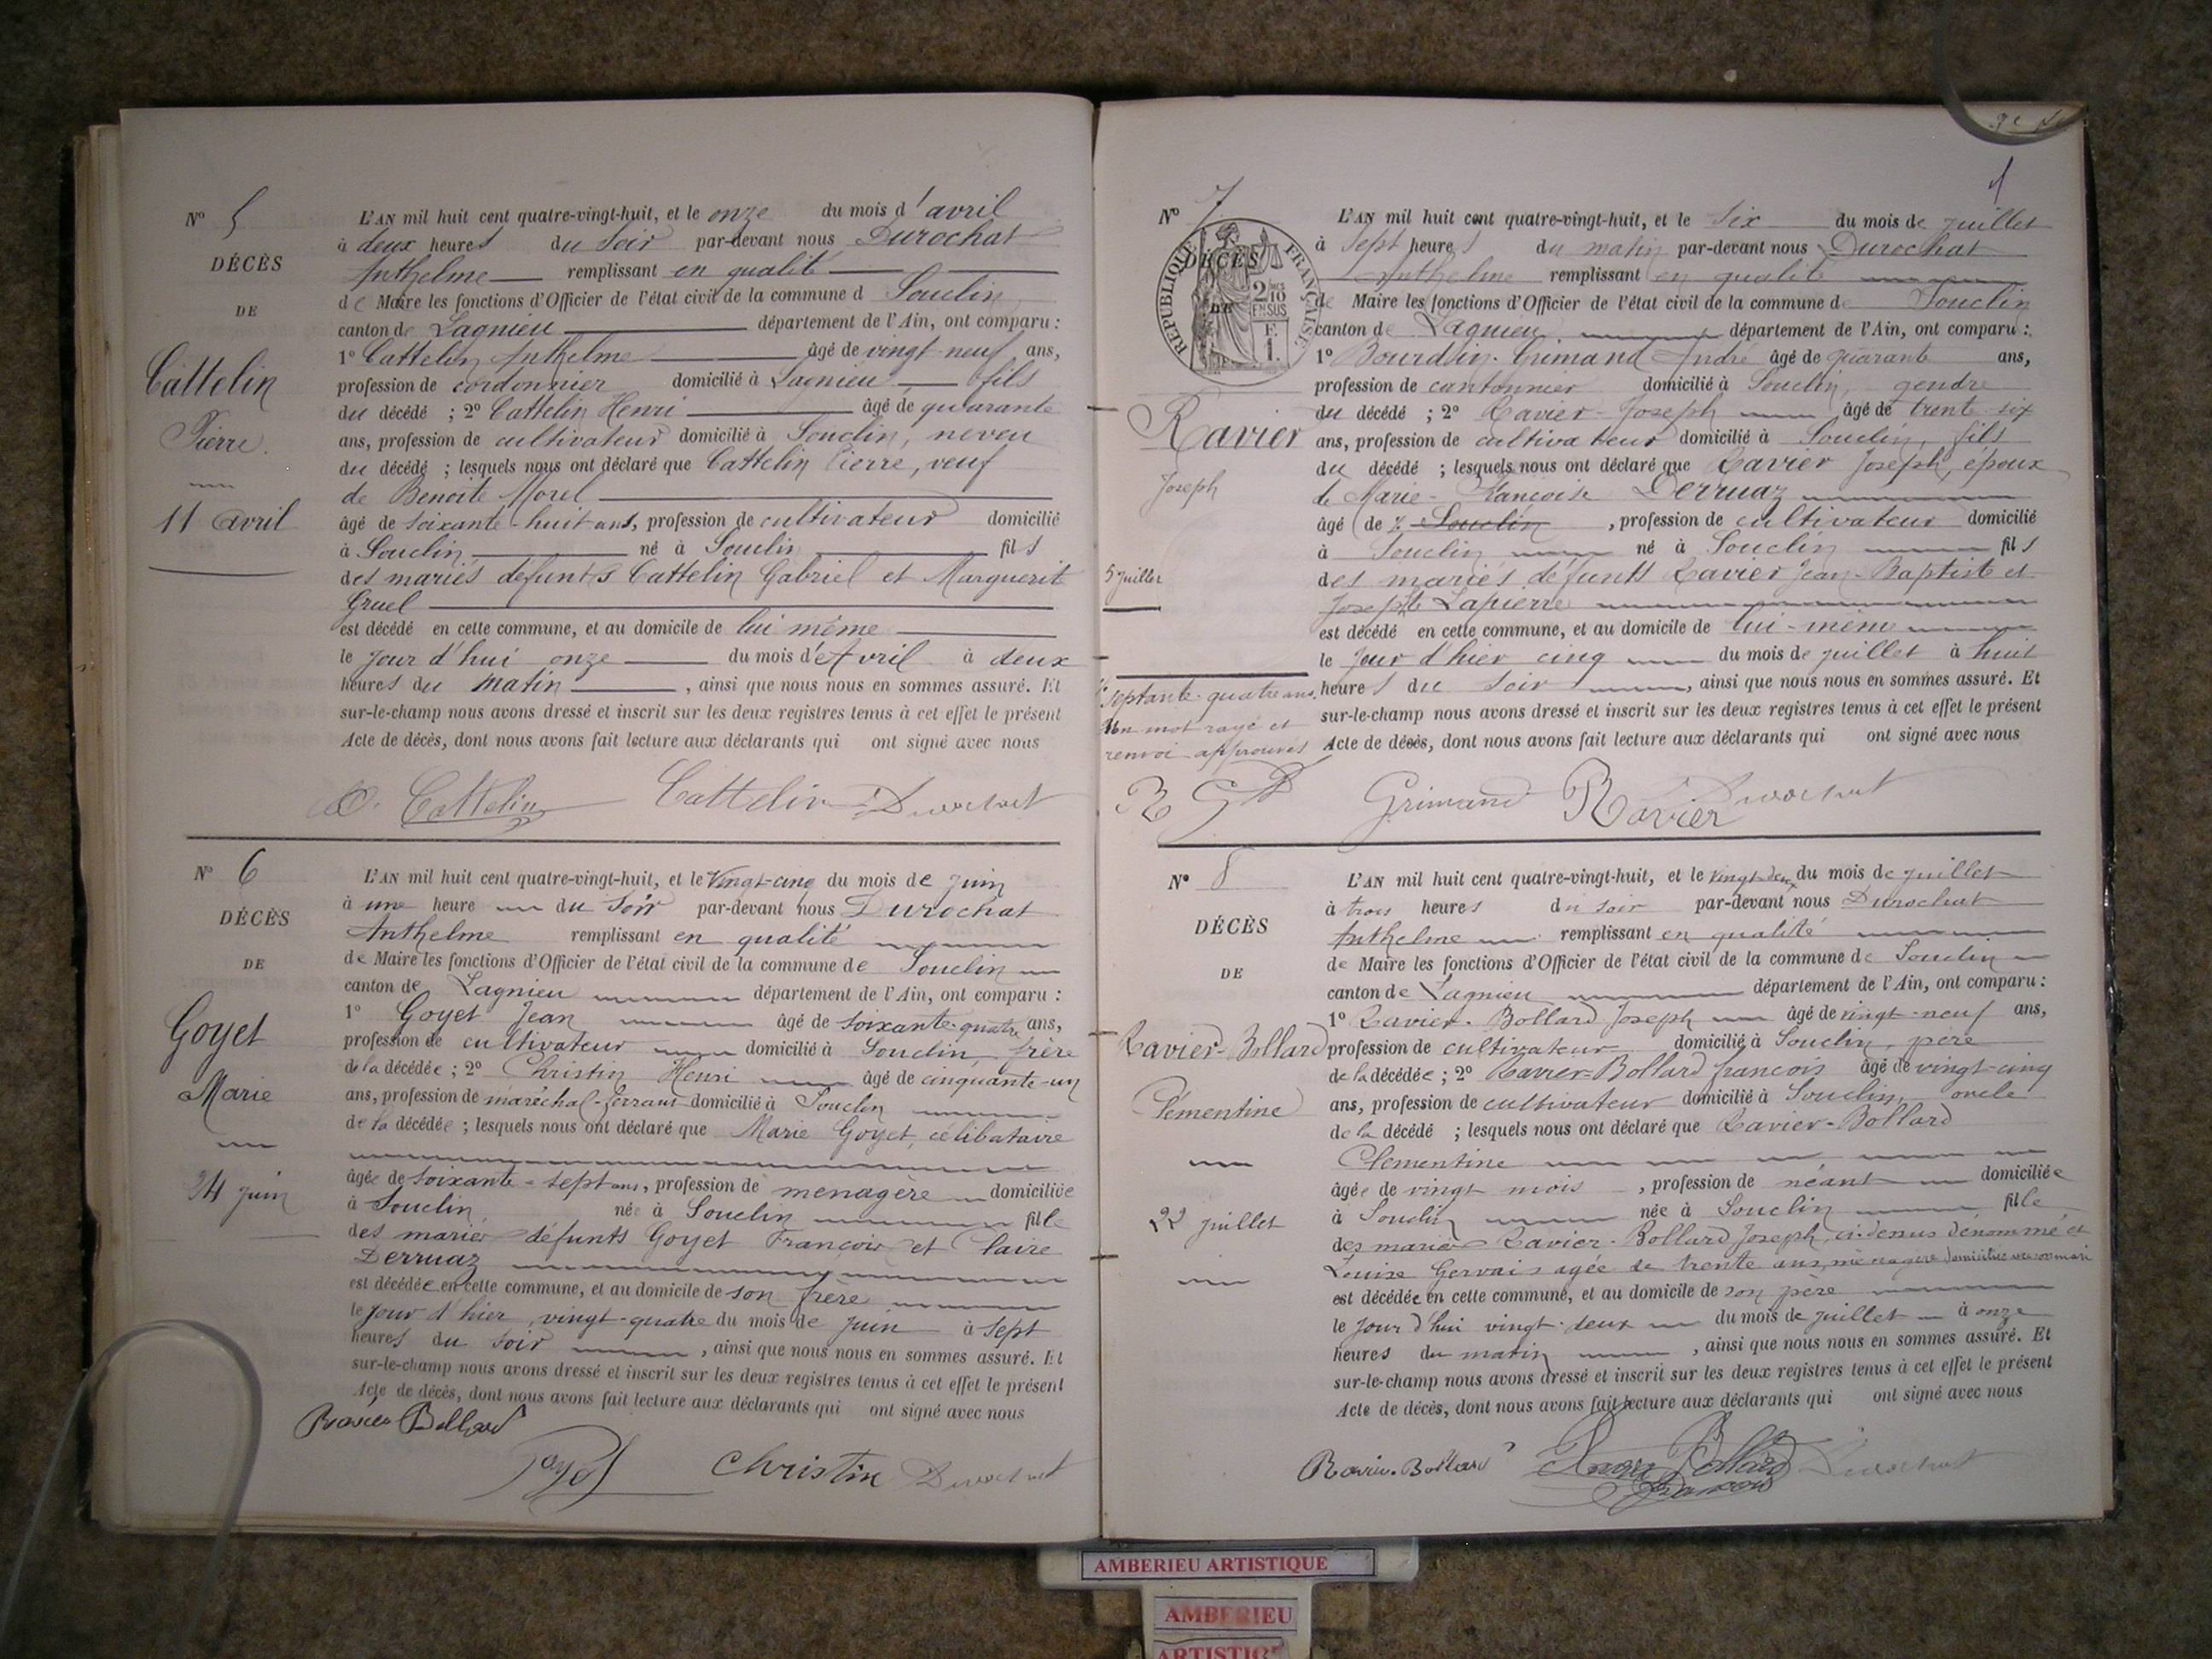 N° 5
DÉCÈS
DE
Cattelin
Pierre.
11 avril
L'AN mil huit cent quatre-vingt-huit, et le onze du mois d'avril
à deux heures du soir par-devant nous Durochat
Anthelme remplissant en qualité
de Maire les fonctions d'Officier de l'état civil de la commune d Souclin
canton de Lagnieu département de l'Ain, ont comparu :
1° Cattelin Anthelme âgé de vingt-neuf ans,
profession de cordonnier domicilié à Lagnieu fils
du décédé ; 2° Cattelin Henri âgé de quarante
ans, profession de cultivateur domicilié à Souclin, neveu
du décédé ; lesquels nous ont déclaré que Cattelin Pierre, veuf
de Benoîte Morel
âgé de soixante-huit ans, profession de cultivateur domicilié
à Souclin né à Souclin fils
des mariés défunts Cattelin Gabriel et Marguerite
Gruel
est décédé en cette commune, et au domicile de lui même
le jour d'hui onze du mois d'Avril à deux
heures du matin, ainsi que nous nous en sommes assuré. Et
sur-le-champ nous avons dressé et inscrit sur les deux registres tenus à cet effet le présent
Acte de décès, dont nous avons fait lecture aux déclarants qui ont signé avec nous
Cattelin Cattelin Durochat
N° 6
DÉCÈS
DE
Goyet
Marie
24 juin
L'AN mil huit cent quatre-vingt-huit, et le vingt-cinq du mois de juin
à une heure du soir par-devant nous Durochat
Anthelme remplissant en qualité
de Maire les fonctions d'Officier de l'état civil de la commune de Souclin
canton de Lagnieu département de l'Ain, ont comparu :
1° Goyet Jean âgé de soixante-quatre ans,
profession de cultivateur domicilié à Souclin frère
de la décédée ; 2° Christin Henri âgé de cinquante-un
ans, profession de maréchal-ferrant domicilié à Souclin
de la décédée ; lesquels nous ont déclaré que Marie Goyet, célibataire
âgée de soixante-sept ans, profession de menagère domiciliée
à Souclin née à Souclin fille
des mariés défunts Goyet François et Claire
Derruaz
est décédée en cette commune, et au domicile de son frère
le jour d'hier, vingt-quatre du mois de juin à sept
heures du soir, ainsi que nous nous en sommes assuré. Et
sur-le-champ nous avons dressé et inscrit sur les deux registres tenus à cet effet le présent
Acte de décès, dont nous avons fait lecture aux déclarants qui ont signé avec nous
Ravier Bollard
Goyet Christin Durochat
N° 7
DÉCÈS
DE
REPUBLIQUE FRANÇAISE
2/10 EN SUS
1 F.
Ravier
Joseph
5 juillet
L'AN mil huit cent quatre-vingt-huit, et le six du mois de juillet
à sept heures du matin par-devant nous Durochat
Anthelme remplissant en qualité
de Maire les fonctions d'Officier de l'état civil de la commune de Souclin
canton de Lagnieu département de l'Ain, ont comparu :
1° Bourdin-Grimand André âgé de quarante ans,
profession de cantonnier domicilié à Souclin, gendre
du décédé ; 2° Ravier Joseph âgé de trente-six
ans, profession de cultivateur domicilié à Souclin, fils
du décédé ; lesquels nous ont déclaré que Ravier Joseph, époux
de Marie-Françoise Derruaz
âgé de Souclin, profession de cultivateur domicilié
à Souclin né à Souclin fils
des mariés défunts Ravier Jean-Baptiste et
Josephte Lapierre
est décédé en cette commune, et au domicile de lui-même
le jour d'hier cinq du mois de juillet à huit
heures du soir, ainsi que nous nous en sommes assuré. Et
sur-le-champ nous avons dressé et inscrit sur les deux registres tenus à cet effet le présent
Acte de décès, dont nous avons fait lecture aux déclarants qui ont signé avec nous
septante-quatre ans.
Un mot rayé et
renvoi approuvés
Grimand Ravier Durochat
N° 8
DÉCÈS
DE
Ravier-Bollard
Clémentine
22 juillet
L'AN mil huit cent quatre-vingt-huit, et le vingt-deux du mois de juillet
à trois heures du soir par-devant nous Durochat
Anthelme remplissant en qualité
de Maire les fonctions d'Officier de l'état civil de la commune de Souclin
canton de Lagnieu département de l'Ain, ont comparu :
1° Ravier-Bollard Joseph âgé de vingt-neuf ans,
profession de cultivateur domicilié à Souclin, père
de la décédée ; 2° Ravier-Bollard françois âgé de vingt-cinq
ans, profession de cultivateur domicilié à Souclin, oncle
de la décédé ; lesquels nous ont déclaré que Ravier-Bollard
Clementine
âgée de vingt mois, profession de néant domiciliée
à Souclin née à Souclin fille
des mariés Ravier-Bollard Joseph, ci-dessus dénommé et
Louise Gervais agée de trente ans, ménagère domiciliée avec son mari
est décédée en cette commune, et au domicile de son père
le jour d'hui vingt-deux du mois de juillet à onze
heures du matin, ainsi que nous nous en sommes assuré. Et
sur-le-champ nous avons dressé et inscrit sur les deux registres tenus à cet effet le présent
Acte de décès, dont nous avons fait lecture aux déclarants qui ont signé avec nous
Ravier-Bollard Ravier Bollard Durochat
François
AMBERIEU ARTISTIQUE
AMBERIEU
ARTISTIQUE